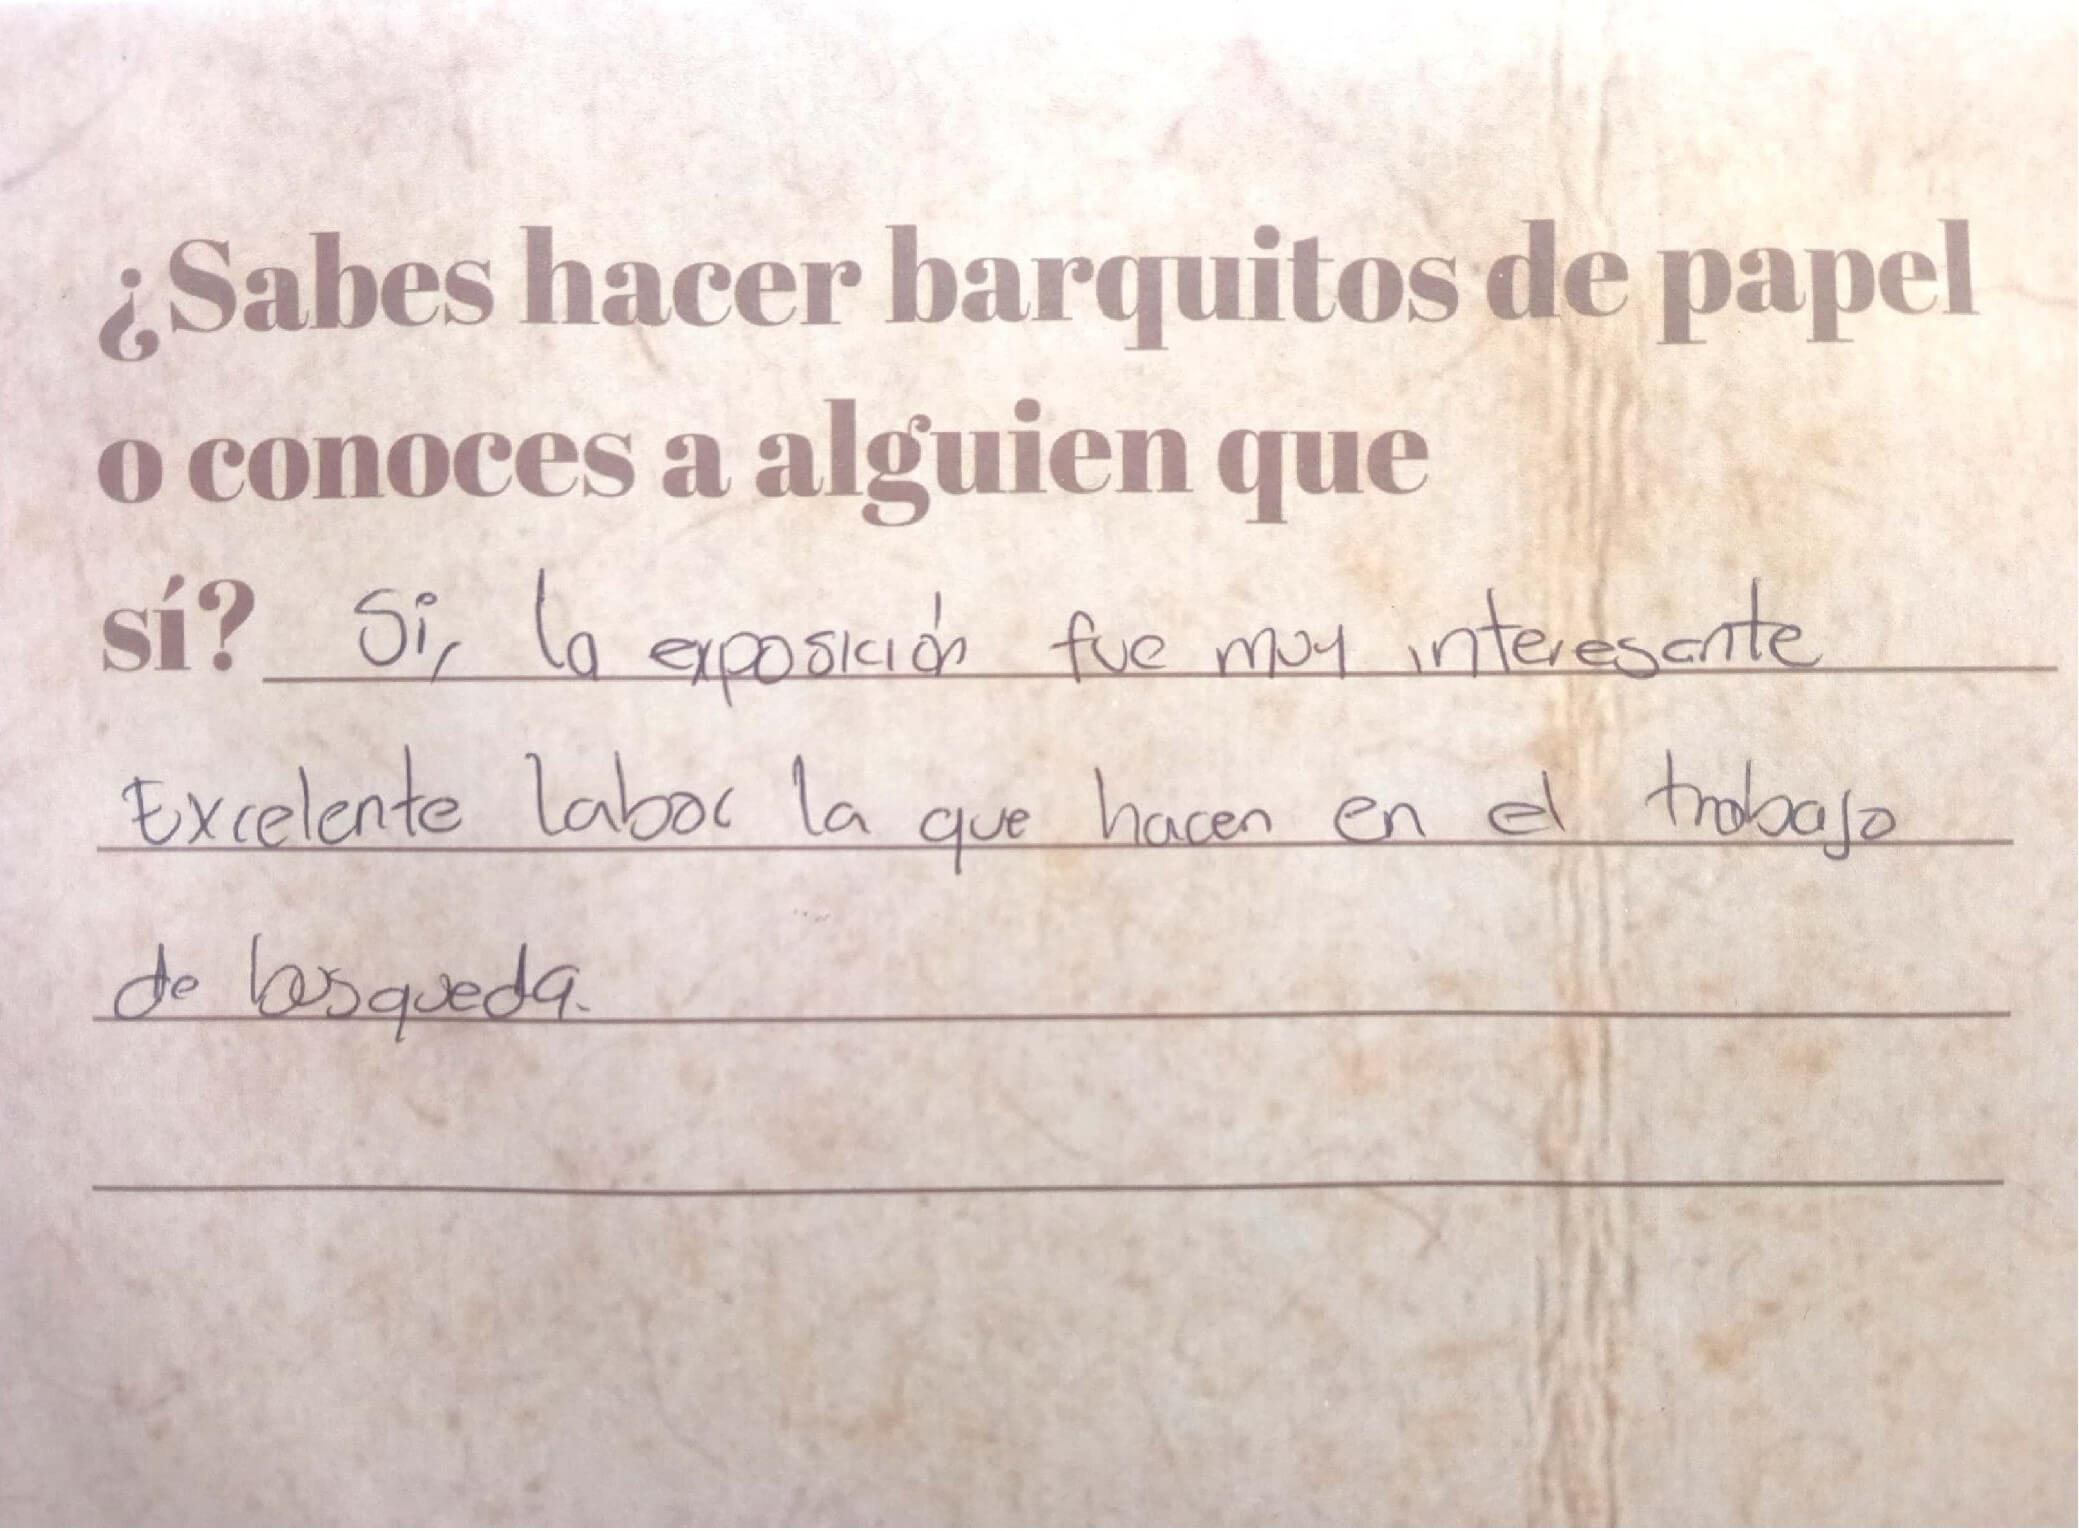 ¿Sabes hacer barquitos de papel
o conoces a alguien que
sí? Si, la exposición fue muy interesante
Excelente labor la que hacen en el trabajo
de busqueda.